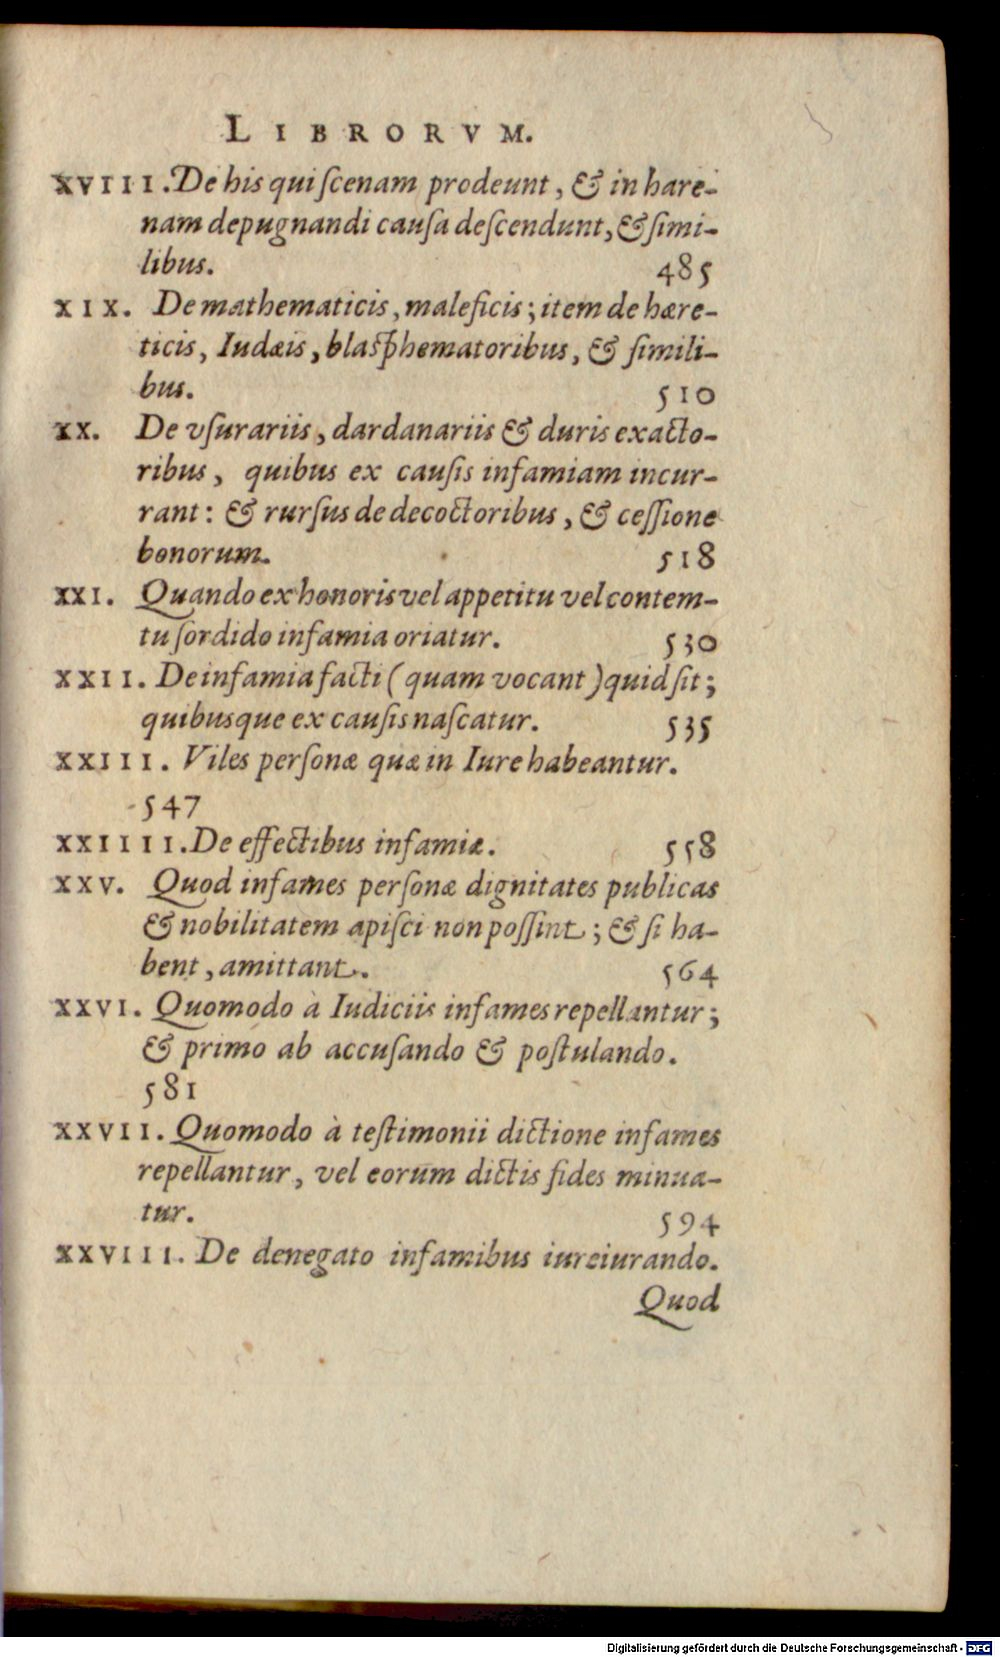 LIBRORVM.
XVIII. De his qui ſcenam prodeunt, & in hare-
nam depugnandi cauſa deſcendunt, & ſimi-
libus. 485
XIX. De mathematicis, maleficis; item de hære-
ticis, Iudæis, blaſphematoribus, & ſimili-
bus. 510
XX. De vſurariis, dardanariis & duris exacto-
ribus, quibus ex cauſis infamiam incur-
rant: & rurſus de decoctoribus, & ceſſione
bonorum. 518
XXI. Quando ex honoris vel appetitu vel contem-
tu ſordido infamia oriatur. 530
XXII. De infamia facti (quam vocant) quid ſit;
quibusque ex cauſis naſcatur. 535
XXIII. Viles perſonæ quæ in Iure habeantur.
547
XXIIII. De effectibus infamiæ. 558
XXV. Quod infames perſonæ dignitates publicas
& nobilitatem apiſci non poſſint; & ſi ha-
bent, amittant. 564
XXVI. Quomodo à Iudiciis infames repellantur;
& primo ab accuſando & poſtulando.
581
XXVII. Quomodo à teſtimonii dictione infames
repellantur, vel eorum dictis fides minua-
tur. 594
XXVIII. De denegato infamibus iureiurando.
Quod
Digitalisierung gefördert durch die Deutsche Forschungsgemeinschaft - DFG